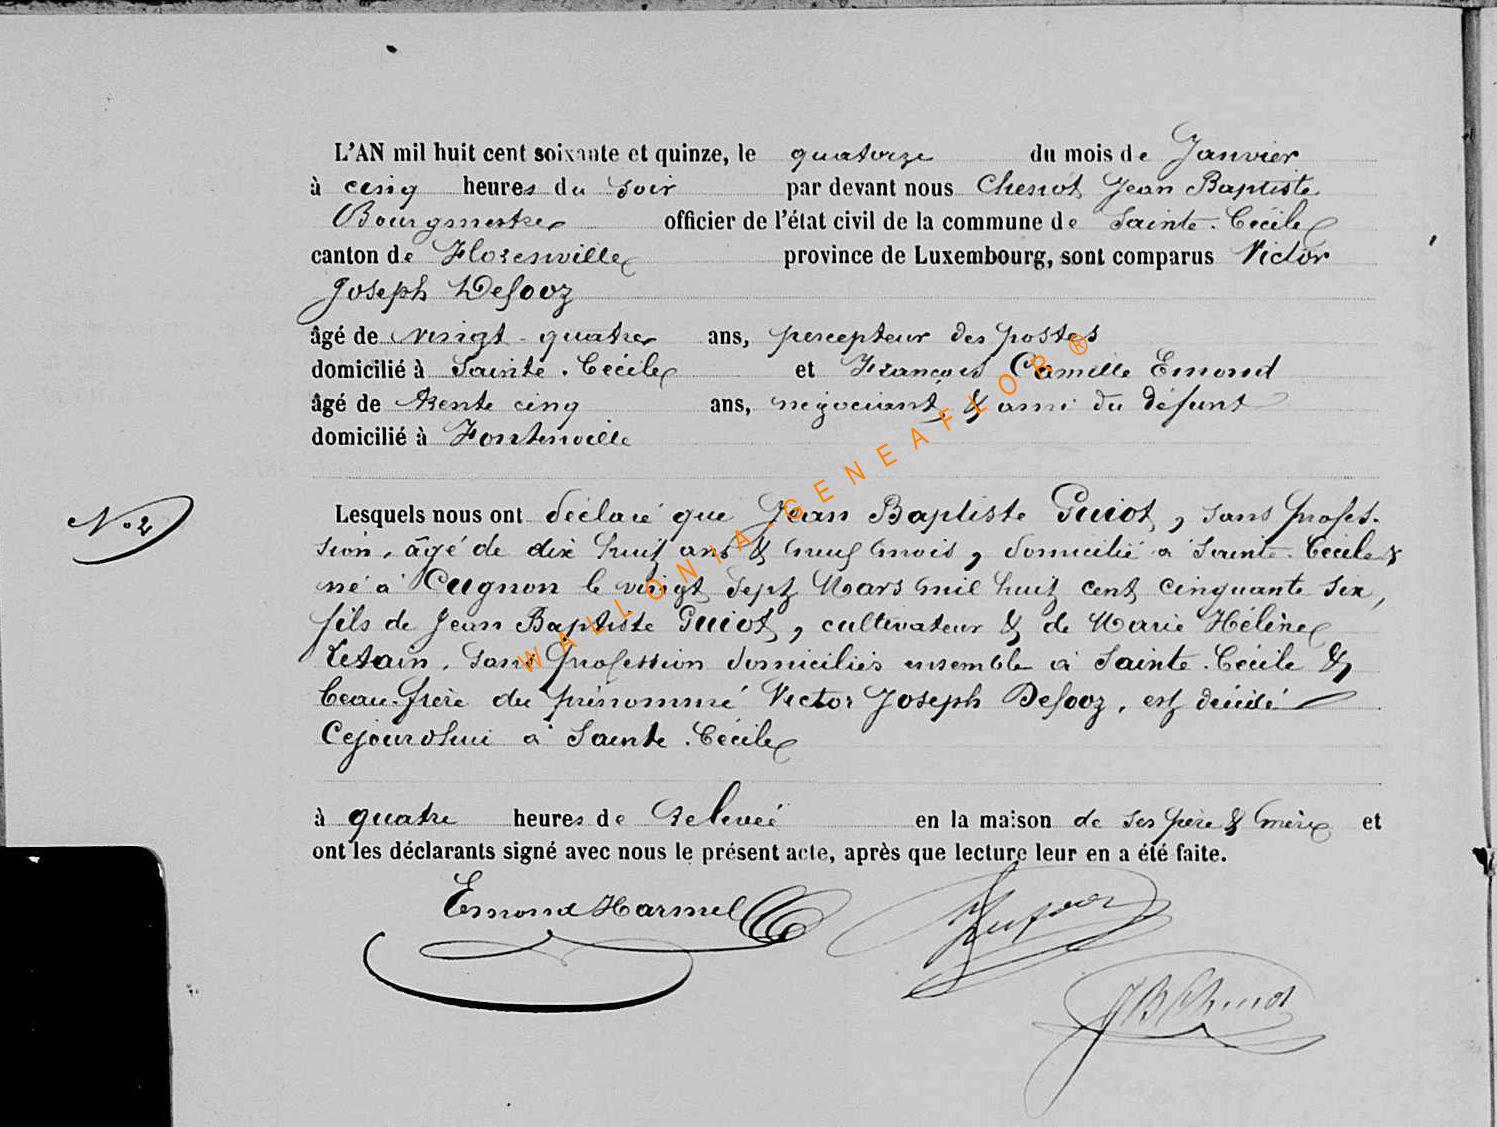 L'AN mil huit cent soixante et quinze, le quatorze du mois de Janvier
à cinq heures du soir par devant nous Chenot Jean Baptiste
Bourgmestre officier de l'état civil de la commune de Sainte-Cécile
canton de Florenville province de Luxembourg, sont comparus Victor
Joseph Defooz
âgé de vingt-quatre ans, percepteur des postes
domicilié à Sainte-Cécile et François Camille Emond
âgé de trente cinq ans, négociant, & ami du défunt
domicilié à Fontenoille
N.° 2
Lesquels nous ont déclaré que Jean Baptiste Guiot, sans profes-
sion, âgé de dix huit ans & neuf mois, domicilié à Sainte-Cécile &
né à Cugnon le vingt sept Mars mil huit cent cinquante six,
fils de Jean Baptiste Guiot, cultivateur & de Marie Hélène
sans profession domiciliés ensemble à Sainte-Cécile &
beau-frère du prénommé Victor Joseph Defooz, est décédé
Cejourdhui à Sainte-Cécile
à quatre heures de relevée en la maison de ses père & mère et
ont les déclarants signé avec nous le présent acte, après que lecture leur en a été faite.
Emond Harmel
Defooz
JB Chenot
WALLONIA-GENEAFLOR®